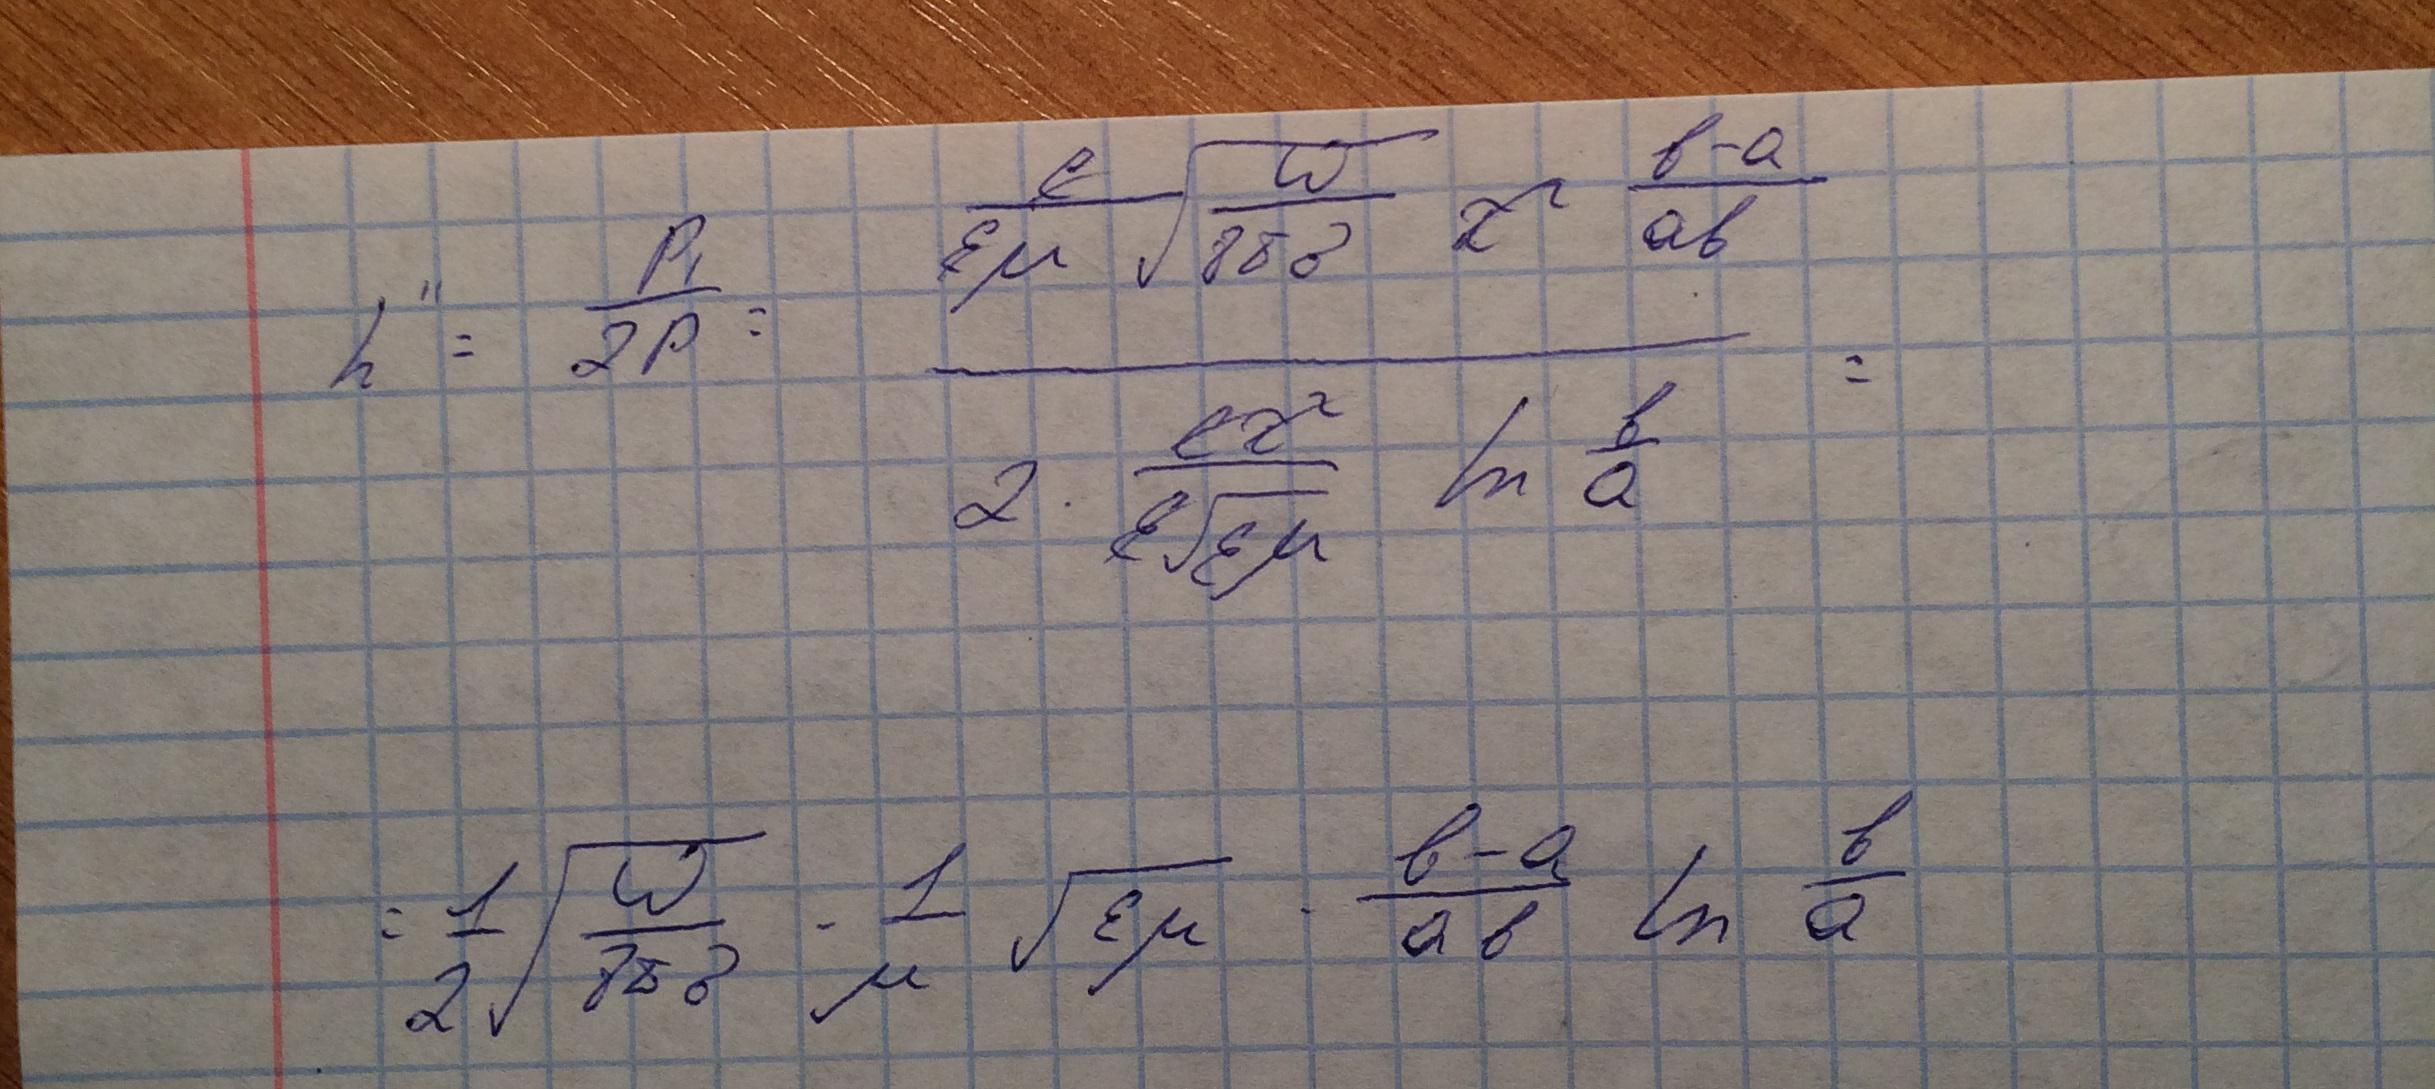 h'' = P₁/2P = (c/εμ √(ω/8πσ) æ² (b-a)/ab) / (2 · cæ²/ε√εμ ln b/a) =
= 1/2 √(ω/8πσ) · 1/μ √εμ · (b-a)/ab ln b/a